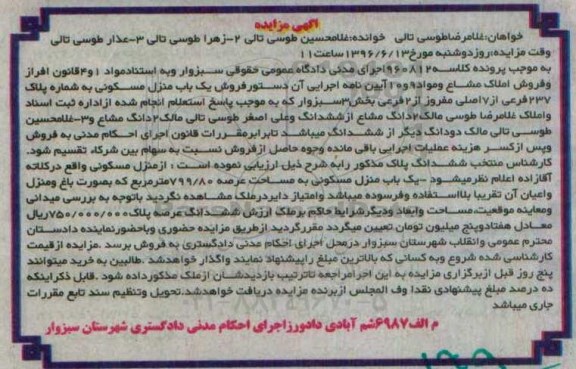 آگهی مزایده
خواهان:غلامرضاطوسی تالی خوانده:غلامحسین طوسی تالی ۲-زهرا طوسی تالی ۳-عذار طوسی تالی
وقت مزایده:روزدوشنبه مورخ۱۳۹۶/۶/۱۳ساعت۱۱
به موجب پرونده کلاسه۹۶۰۸۱۲اجرای مدنی دادگاه عمومی حقوقی سبزوار وبه استنادمواد ۱و۴قانون افراز
وفروش املاک مشاع ومواد۹و۱۰آیین نامه اجرایی آن دستورفروش یک باب منزل مسکونی به شماره پلاک
۲۳۷فرعی از۷اصلی مفروز از۲فرعی بخش۳سبزوار که به موجب پاسخ استعلام انجام شده ازاداره ثبت اسناد
واملاک غلامرضا طوسی مالک۲دانگ مشاع ازششدانگ وعلی اصغر طوسی تالی مالک۲دانگ مشاع و۳-غلامحسین
طوسی تالی مالک دودانگ دیگر از ششدانگ میباشد تابرابرمقررات قانون اجرای احکام مدنی به فروش
وپس ازکسر هزینه عملیات اجرایی باقی مانده وجوه حاصل ازفروش نسبت به سهام بین شرکاء تقسیم شود.
کارشناس منتخب ششدانگ پلاک مذکور رابه شرح ذیل ارزیابی نموده است : ازمنزل مسکونی واقع درکلاته
آقازاده اعلام نظرمیشود -یک باب منزل مسکونی به مساحت عرصه ۷۹۹/۸۰مترمربع که بصورت باغ ومنزل
واعیان آن تقریبا بلااستفاده وفرسوده میباشد وامتیاز دایردرملک مشاهده نگردید باتوجه به بررسی میدانی
ومعاینه موقعیت،مساحت وابعاد ودیگرشرایط حاکم برملک ارزش ششدانگ عرصه پلاک۷۵۰/۰۰۰/۰۰۰ریال
معادل هفتادوپنج میلیون تومان تعیین میگردد مقررگردید ازطریق مزایده حضوری وباحضورنماینده دادستان
محترم عمومی وانقلاب شهرستان سبزوار درمحل اجرای احکام مدنی دادگستری به فروش برسد .مزایده ازقیمت
کارشناسی شده شروع وبه کسانی که بالاترین مبلغ راپیشنهاد نمایند واگذار خواهدشد .طالبین به خرید میتوانند
پنج روز قبل ازبرگزاری مزایده به این اجرامراجعه تاترتیب بازدیدشان ازملک مذکورداده شود .قابل ذکراینکه
ده درصد مبلغ پیشنهادی نقدا وف المجلس ازبرنده مزایده دریافت خواهدشد.تحویل وتنظیم سند تابع مقررات
جاری میباشد
م الف۶۹۸۷شم آبادی دادورزاجرای احکام مدنی دادگستری شهرستان سبزوار